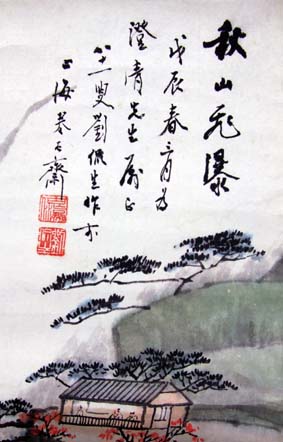 秋山飛瀑
戊辰春月為
澄清先生屬正
八十一叟劉侃生作於
上海石齋